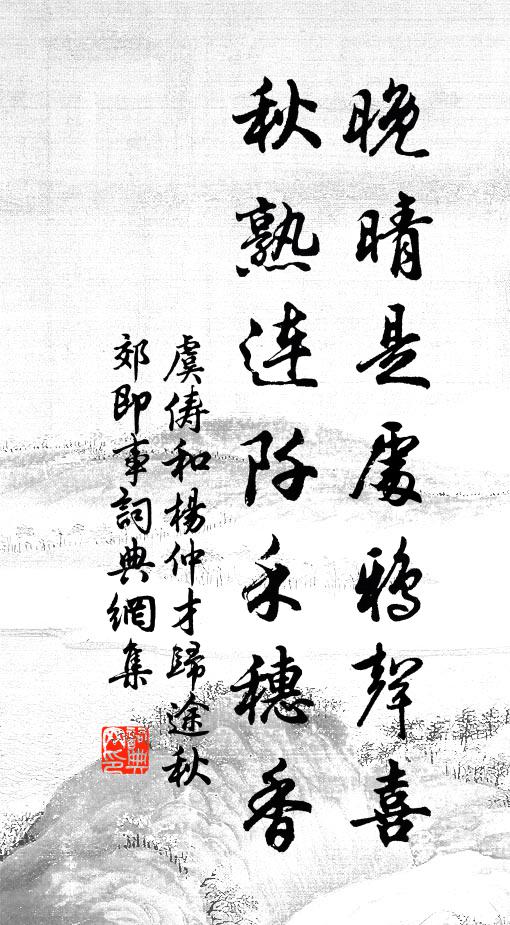 晚晴是處鴉聲喜
秋熟連阡禾穗香
虞儔和楊仲才歸途秋
郊即事詞典網集